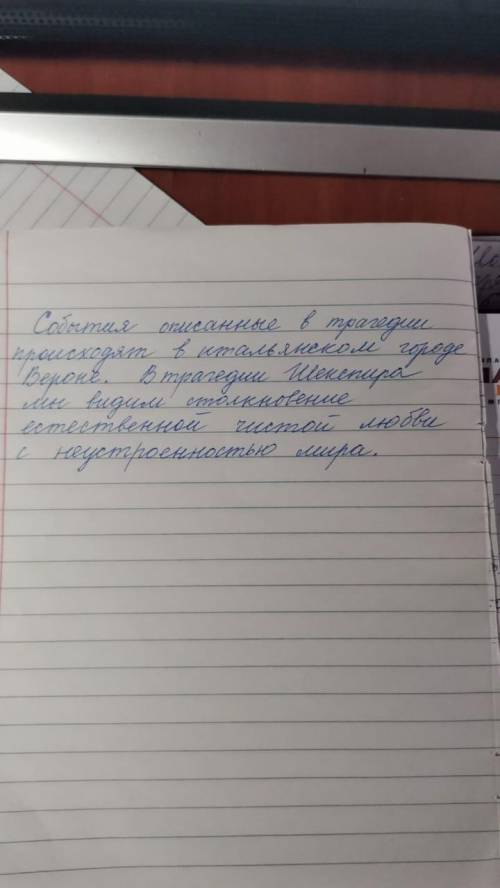 События описанные в трагедии
происходят в итальянском городе
Вероне. В трагедии Шекспира
мы видим столкновение
естественной чистой любви
с неустроенностью мира.